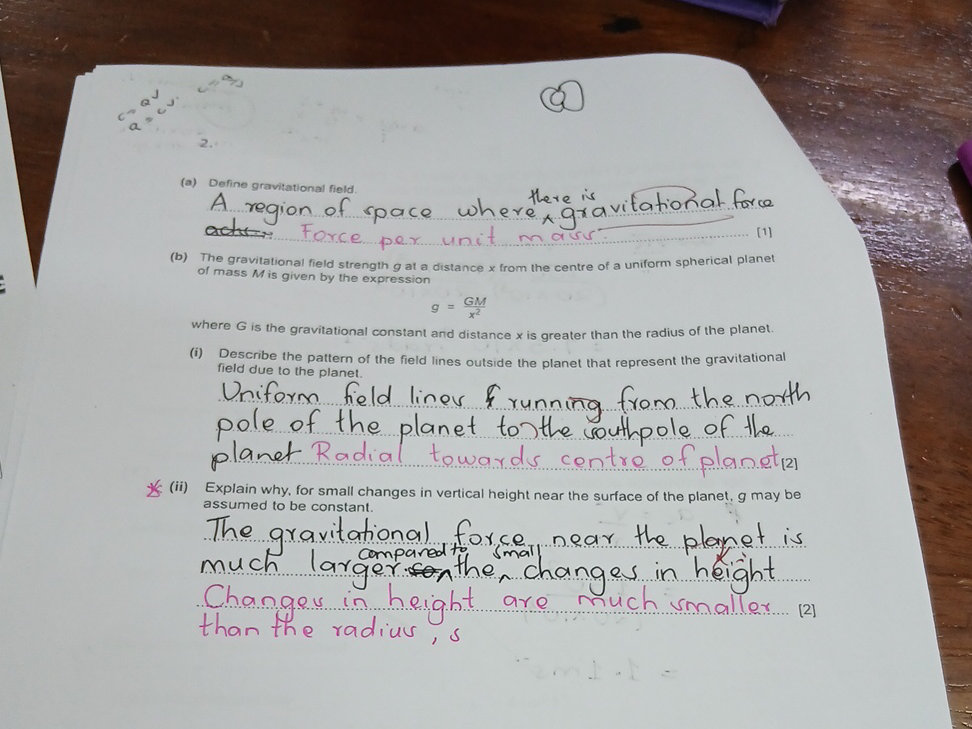 2.
(a) Define gravitational field.
A region of space where there is gravitational force
acts. Force per unit mass. [1]
(b) The gravitational field strength g at a distance x from the centre of a uniform spherical planet
of mass M is given by the expression
g = GM/x²
where G is the gravitational constant and distance x is greater than the radius of the planet.
(i) Describe the pattern of the field lines outside the planet that represent the gravitational
field due to the planet.
Uniform field lines running from the north
pole of the planet to the southpole of the
planet Radial towards centre of planet [2]
(ii) Explain why, for small changes in vertical height near the surface of the planet, g may be
assumed to be constant.
The gravitational force near the planet is
much larger compared to the small changes in height
Changes in height are much smaller [2]
than the radius, s